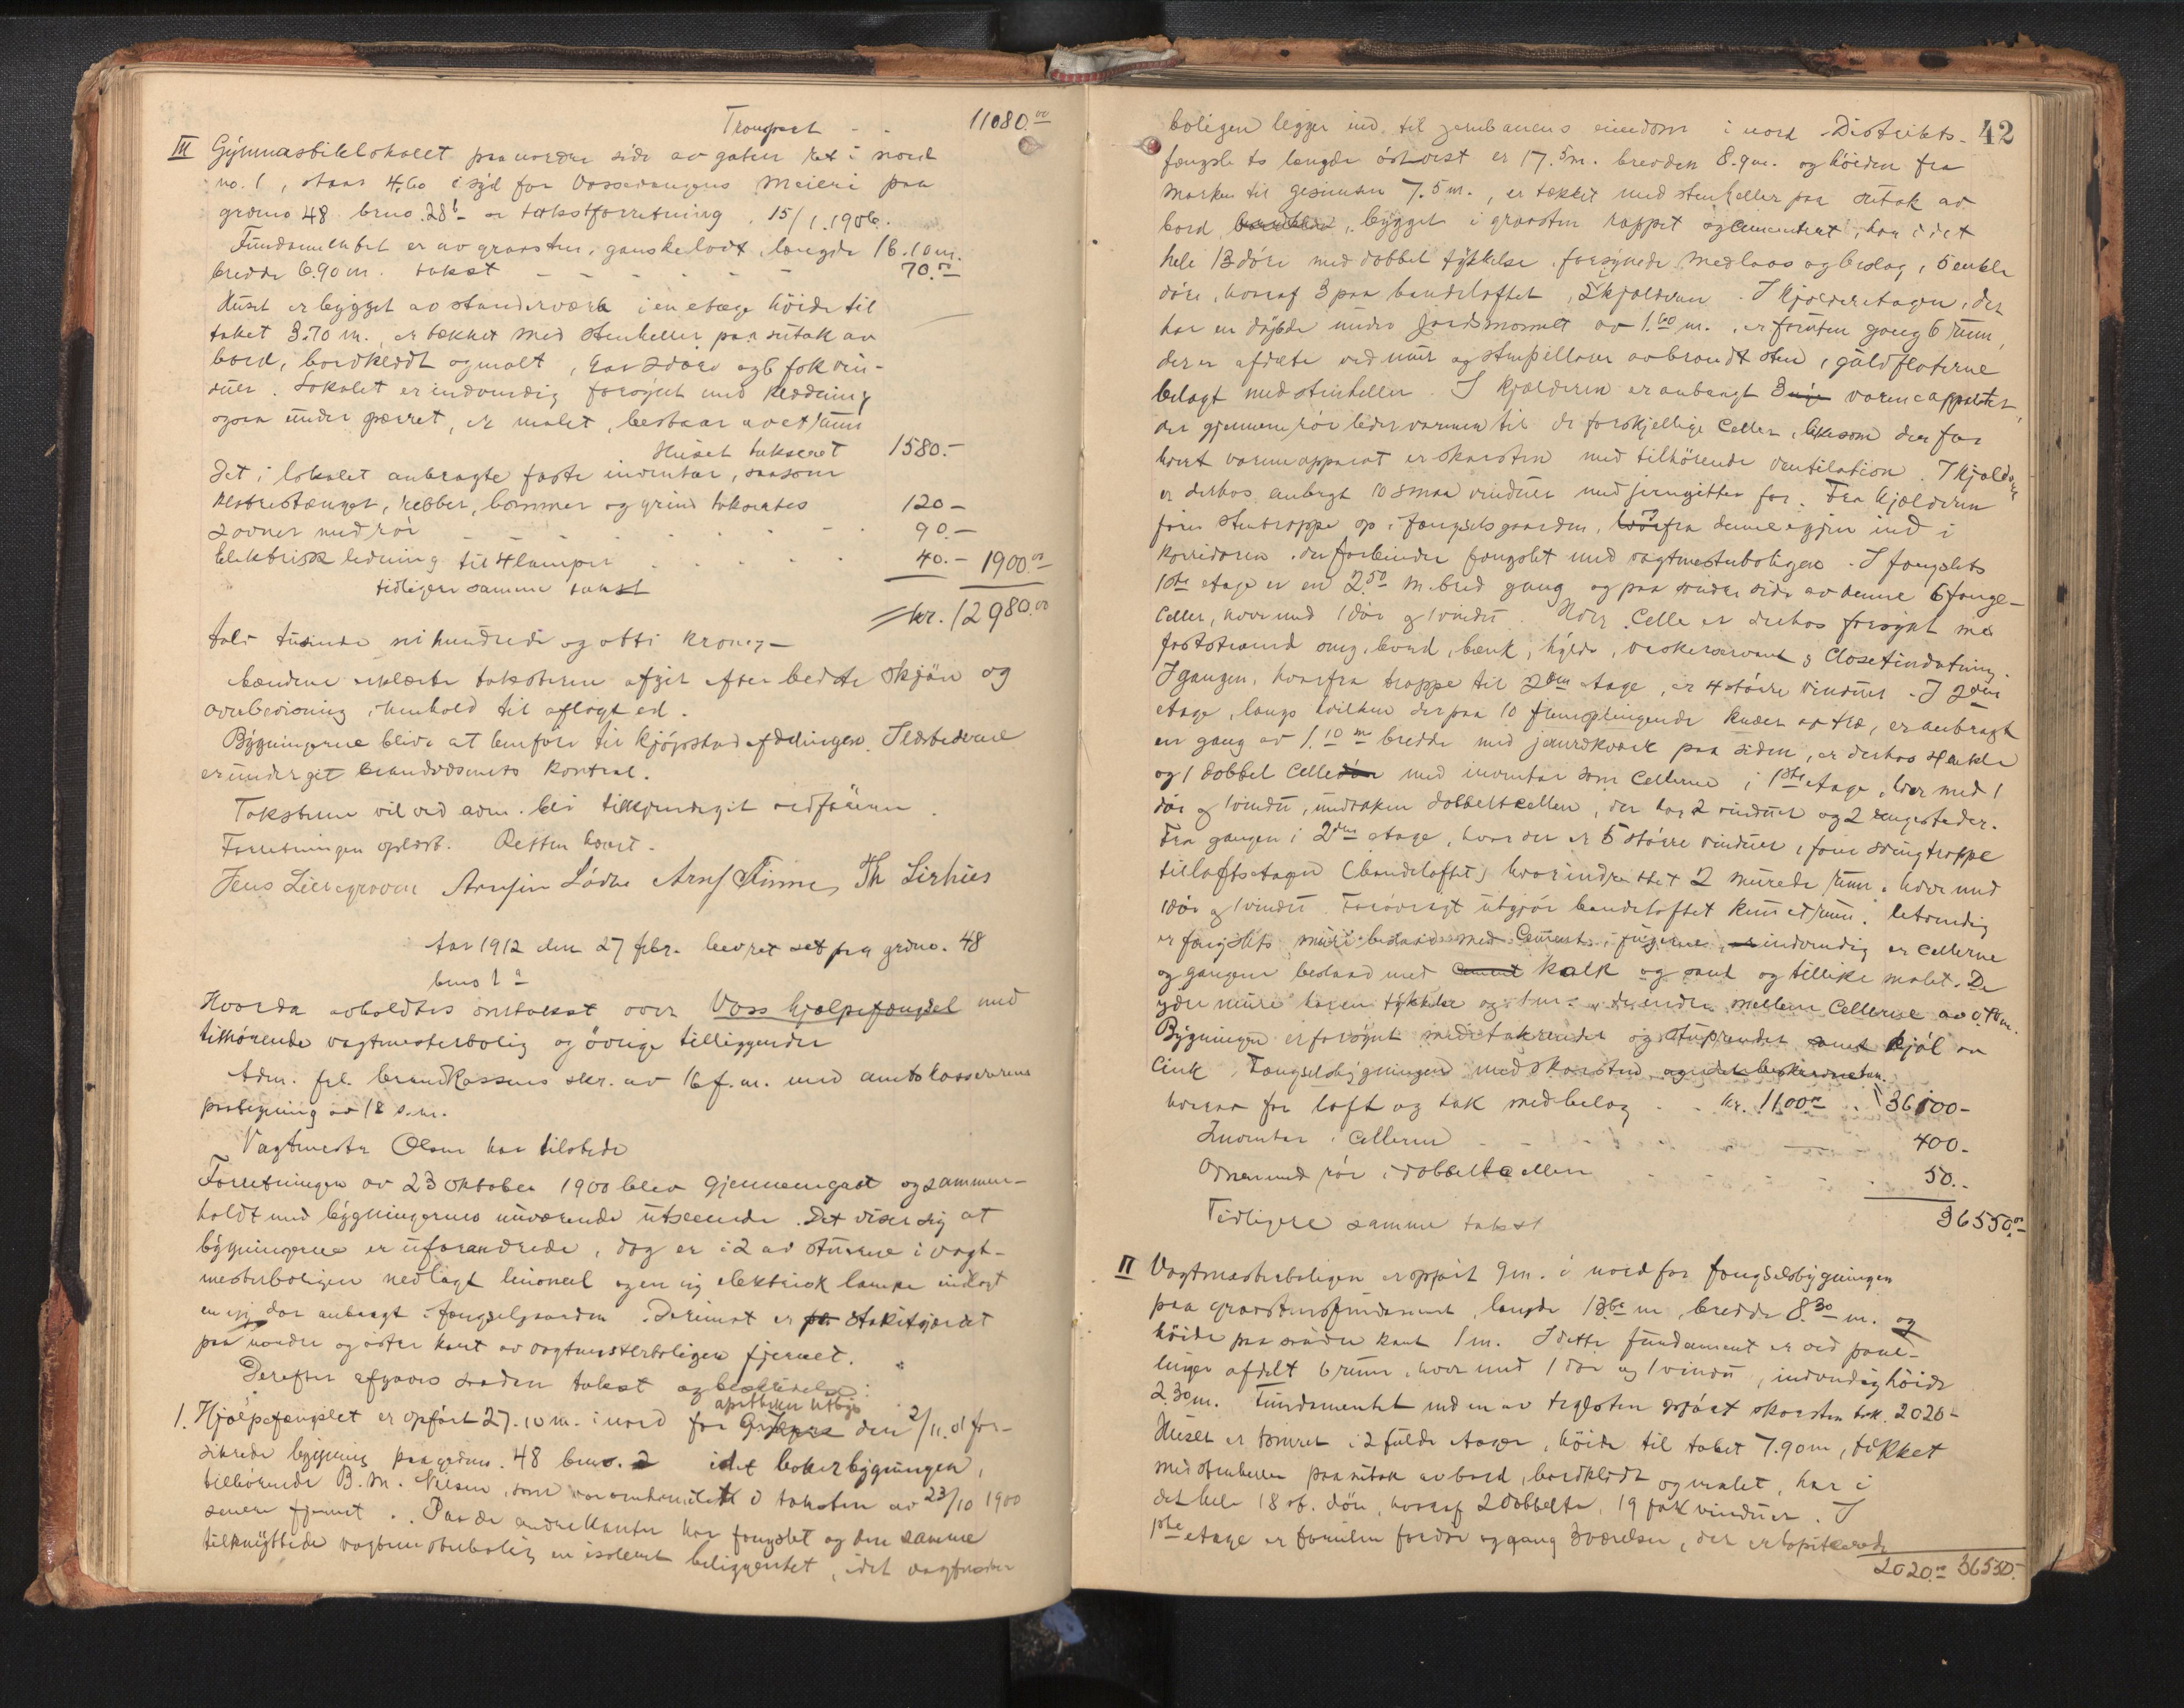 Transport - - 11080.00
III Gymnastiklokalet paa nordre side av gaten ret i nord
no. 1, staar 4.60 i syd for Vossevangens Meieri paa
grdno 48 brno. 28b - se takstforretning 15/1.1906.
Fundamentet er av graasten, ganske lavt, længde 16.10 m.
bredde 6.90 m. takst - - - - - 70.00
Huset er bygget av standerværk i en etage höide til
taket 3.70 m., er tækket med stenheller paa sutak av
bord, bordklædt og malt, har 2 döre og 6 fok vin-
duer. Lokalet er indvendig forsynt med klædning
ogsaa under sperret, er malet, bestaar av et rum
Huset takseret 1580.-
Det i lokalet anbragte faste inventar, saasom
klatrestænger, ribber, bommer og grind taksertes 120-
2 ovner med rör - - - - - 90.-
Elektrisk ledning til 4 lamper - - - 40.- 1900.00
tidligere samme takst
kr. 12980.00
tolv tusinde ni hundrede og otti kroner -
Mændene erklærte taksterne afgit efter bedste skjön og
overbevisning i henhold til aflagt ed.
Bygningerne blive at henföre til kjöpstadafdelingen. Ildstederne
er underget brandvæsenets kontrol.
Taksterne vil ved adm. bli tilkjendegit vedkommende.
Forretningen oplæst. Retten hævet.
Jens Liersgroven Arnfin Lödve Arnf Finne, Th Lirhus
Aar 1912 den 27 febr. blev ret sat paa grdno. 48
brno 1a
Hvorda avholdtes omtakst over Voss hjælpefængsel med
tilhörende vagtmesterbolig og övrige tilliggender
Adm. frl. brandkassens skr. av 16 f.m. med amtskassererens
paategning av 18 s.m.
Vagtmester Olsen var tilstede
Forretningen av 23 oktober 1900 blev gjennemgaat og sammen-
holdt med bygningernes nuværende utseende. Det viser sig at
bygningerne er uforandrede, dog er i 2 av stuerne i vagt-
mesterboligen nedlagt linoneul og en ny elektrisk lampe indlagt
en ny dör anbragt i fængselsgaarden. Derimot er stakitgjærdet
paa nordre og östre kant av vagtmesterboligen fjernet.
Derefter afgaves saadan takst og beskrivelse:
apotheker Utbys
1. Hjælpefængslet er opfört 27.10 m. i nord for den 2/11.01 for-
sikrede bygning paa grdno. 48 brno. 2 idet bokerbygningen,
tilhörende B. M. Nilsen, som var omhandlet i taksten av 23/10 1900
senere fjernet. Paa de andre kanter har fængslet og den samme
tilknyttede vagtmesterbolig en isoleret beliggenhet, idet vagtmester
42
boligen ligger ind til jernbanens eiendom i nord. Distrikts-
fængslets længde öst-vest er 17.5 m. bredden 8.9 m. og höiden fra
marken til gesimsen 7.5 m., er tækket med stenheller paa sutak av
bord, bygget i graasten rappet og cimentert, har i det
hele 13 döre med dobbel tykkelse forsynede med laas og beslag, 5 enkle
döre, hvoraf 3 paa bandeloftet, 2 kjælderen. I kjælderetagen, der
har en dybde under jordsmonnet av 1.60 m., er foruten gang 6 rum,
der er afdelte ved mur og stenpillarer av brændt sten, guldflaterne
belagt med stenheller. I kjælderen er anbragt 3 varmeapparater,
der gjennem rör leder varmen til de forskjellige celler, likesom der for
hvert varmeapparat er skorsten med tilhörende ventilation. I kjælderen
er derhos anbragt 10 smaa vinduer med jerngitter for. Fra kjælderen
förer stentrappe op i fængselsgaarden, fra denne igjen ind i
korridoren, der forbinder fængslet med vagtmesterboligen. I fængslets
1ste etage er en 2.50 m. bred gang og paa söndre side av denne 6 fange-
celler, hver med 1 dör og 1 vindu. Hver celle er derhos forsynt med
fastskruvet seng, bord, bænk, hylde, vaskeservant og closetindretning.
I gangen, hvorfra trappe til 2den etage, er 4 större vinduer. I 2den
etage, langs hvilken der paa 10 fremspringende knæer av træ, er anbragt
en gang av 1.10 m bredde med jernrækverk paa siden, er derhos 4 enkle
og 1 dobbel celle med inventar som cellerne i 1ste etage, hver med 1
dör og 1 vindu, undtagen dobbeltcellen, der har 2 vinduer og 2 sengesteder.
Fra gangen i 2den etage, hvor der er 5 större vinduer, förer svingtrappe
til loftsetagen (bandeloftet) hvor indredet 2 murede rum, hver med
1 dör og 1 vindu. Forövrigt utgjör bandeloftet kun et rum. Utvendig
er fængslets mure bestaaende med Cement i fugerne, indvendig er cellerne
og gangen bestaad med kalk og sand og tillike malet. De
ydre mure har en tykkelse av 1 m. de indre mellem cellerne av 0.40 m.
Bygningen er forsynt med takrender og stuprender samt kjöl av
Cink. Fængselsbygningen med skorsten
hvorav for loft og tak med belag - - kr. 1100.00 - 36100-
Inventar i cellerne - - - - 400.-
Ovnen med rör i dobbeltcellen - - - 50.-
Tidligere samme takst 36550.00
II Vagtmesterboligen er opfört 9 m. i nord for fængselsbygningen
paa graastensfundament, længde 13.60 m, bredde 8.30 m. og
höide paa söndre kant 1 m. I dette fundament er ved panel-
linger afdelt 6 rum, hver med 1 dör og 1 vindu, indvendig höide
2.30 m. Fundamentet med en av teglsten opfört skorsten tak. 2020-
Huset er tömret i 2 fulde etager, höide til taket 7.90 m, tækket
med stenheller paa sutak av bord, bordklædt og malet, har i
det hele 18 st. döre, hvoraf 2 dobbelte, 19 fok vinduer. I
1ste etage er foruten fordör og gang 3 værelser, der er tapetserede
2020.00 36550.-